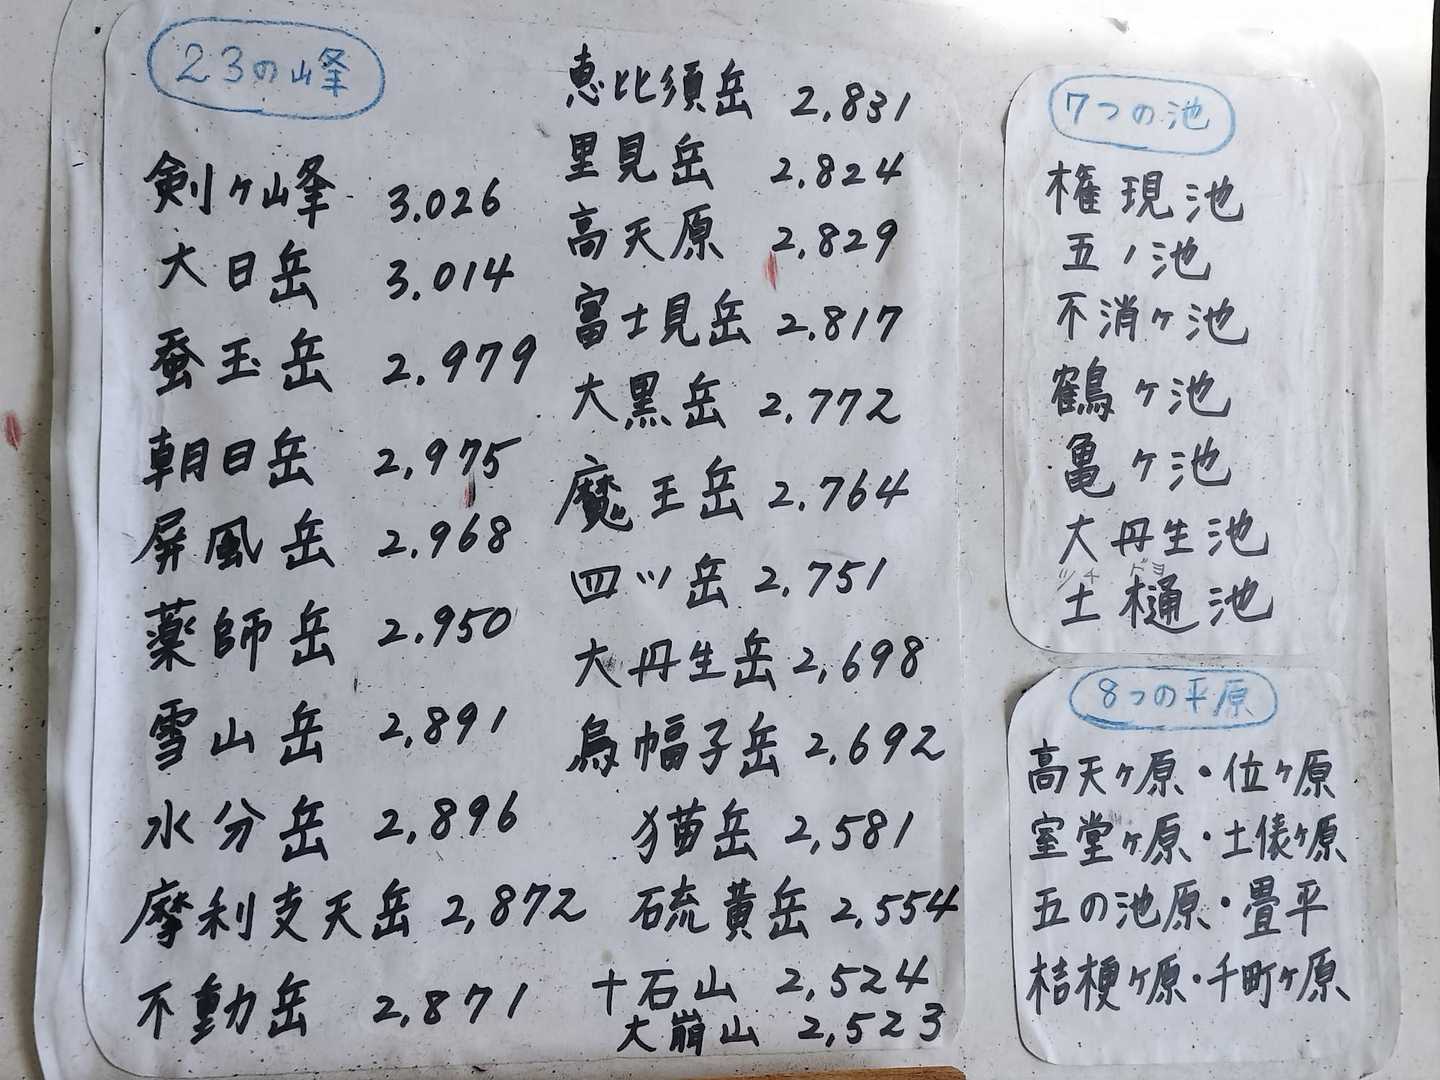 23の峰
剣ヶ峰 3.026
大日岳 3.014
蚕玉岳 2.979
朝日岳 2,975
屏風岳 2.968
薬師岳 2.950
雪山岳 2,891
水分岳 2,896
摩利支天岳 2,872
不動岳 2,871
恵比須岳 2,831
里見岳 2,824
高天原 2,829
富士見岳 2.817
大黒岳 2.772
魔王岳 2.764
四ツ岳 2,751
大丹生岳 2,698
烏帽子岳 2,692
猫岳 2,581
硫黄岳 2,554
十石山 2,524
大崩山 2,523
7つの池
権現池
五ノ池
不消ヶ池
鶴ヶ池
亀ヶ池
大丹生池
ツチ ドヨ
土樋池
8つの平原
高天ヶ原・位ヶ原
室堂ヶ原・土俵ヶ原
五の池原・畳平
桔梗ヶ原・千町ヶ原